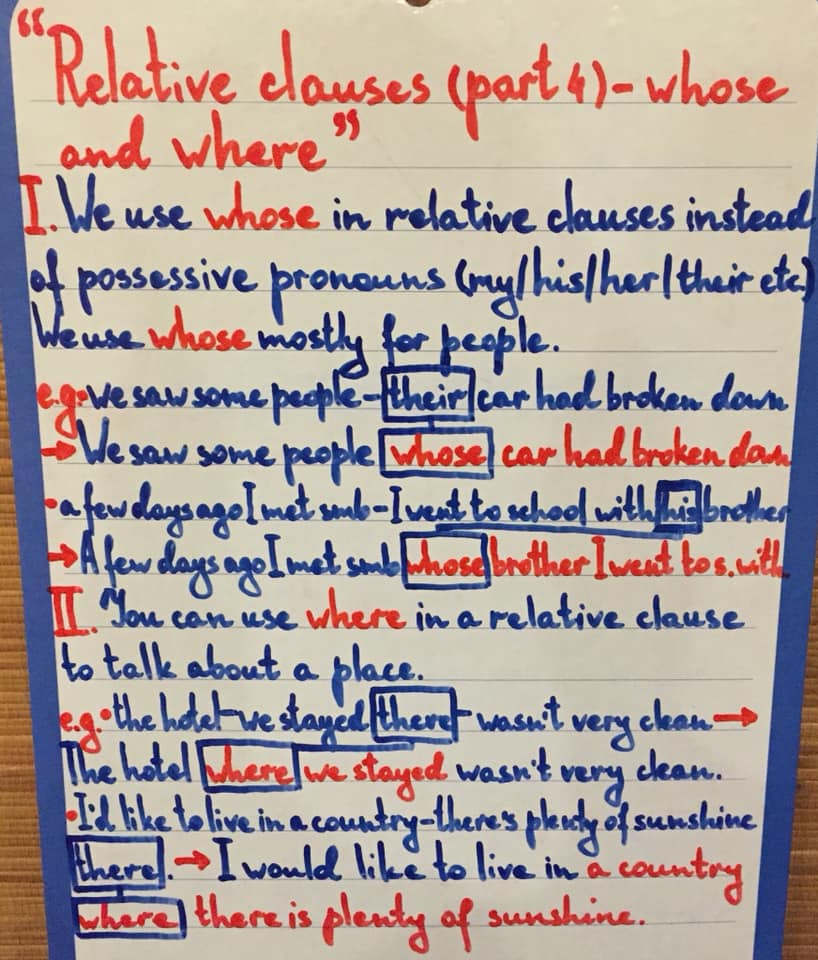 "Relative clauses (part 4) - whose
and where"
I. We use whose in relative clauses instead
of possessive pronouns (my/his/her/their etc)
We use whose mostly for people.
e.g. • we saw some people - their car had broken down
→ We saw some people whose car had broken down
• a few days ago I met smb - I went to school with his brother
→ A few days ago I met smb whose brother I went to s. with
II. You can use where in a relative clause
to talk about a place.
e.g. • the hotel - we stayed there - wasn't very clean →
The hotel where we stayed wasn't very clean.
• I'd like to live in a country - there's plenty of sunshine
there. → I would like to live in a country
where there is plenty of sunshine.